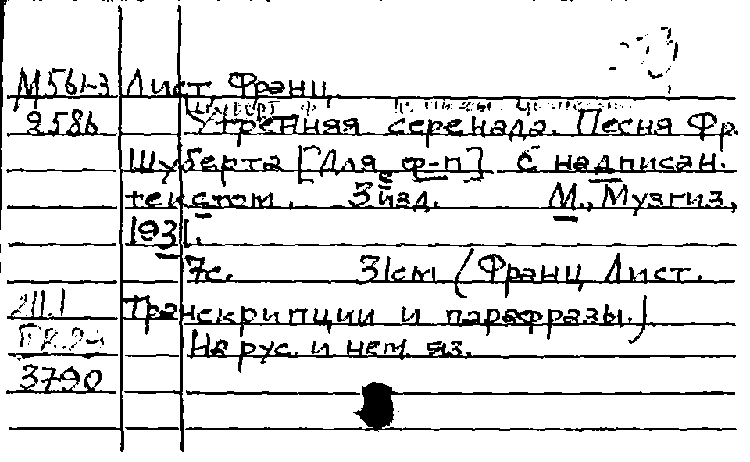 М561-3 Лист, Франц.
258б Утренняя серенада. Песня Фр.
Шуберта [Для ф-п] С надписан.
текстом. 3е изд. М., Музгиз,
1931.
7с. 31см (Франц Лист.
Транскрипции и парафразы.)
На рус. и нем. яз.
3790